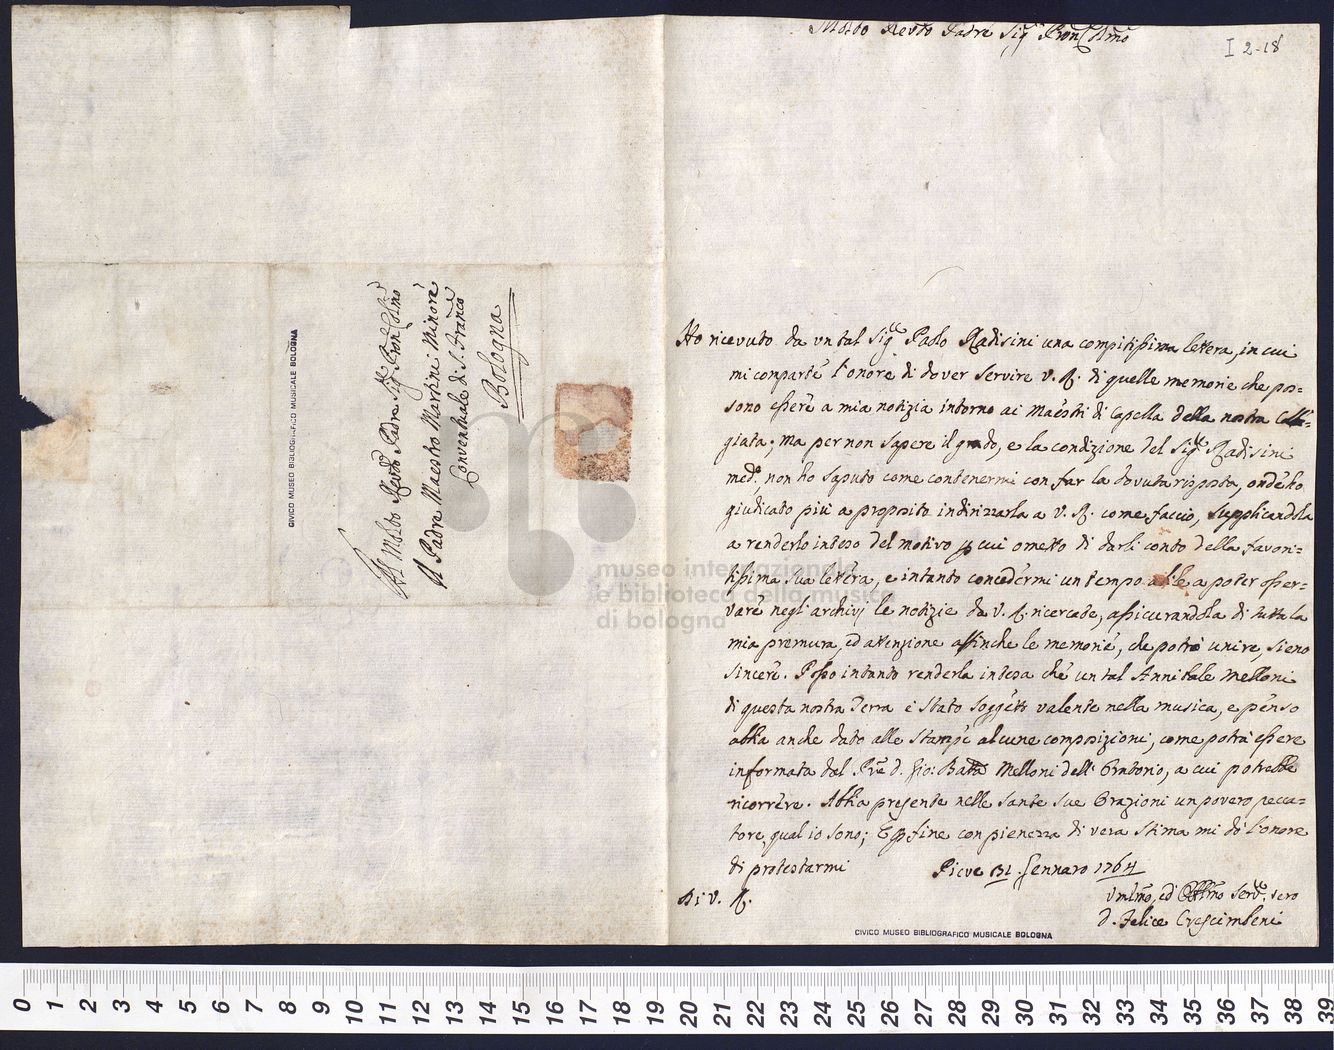 Molto Revdo Padre Sigr Pron Colmo
I 2-18
Ho ricevuto da un tal Sigre Paolo Radisini una compitissima lettera, in cui
mi comparte l'onore di dover servire V. R. di quelle memorie che pos=
sono essere a mia notizia intorno ai Maestri di Capella della nostra Colle=
giata; ma per non sapere il grado, e la condizione del Sigre Radisini
medo, non ho saputo come contenermi con far la dovuta risposta, onde ho
giudicato più a proposito indirizzarla a V. R. come faccio, supplicandola
a renderlo inteso del motivo p cui ometto di darli conto della favori=
tissima sua lettera, e intanto concedermi un tempo abile a poter osser=
vare negl'archivj le notizie da V. R. ricercate, assicurandola di tutta la
mia premura, ed attenzione affinche le memorie, che potrò unire, sieno
sincere. Posso intanto renderla intesa che un tal Annibale Melloni
di questa nostra Terra è stato soggetto valente nella musica, e penso
abbia anche dato alle stampe alcune composizioni, come potrà essere
informata dal Pre D. Gio: Batta Melloni dell'Oratorio, a cui potrebbe
ricorrere. Abbia presente nelle sante sue Orazioni un povero pecca=
tore, qual io sono; E p fine con pienezza di vera stima mi dò l'onore
di protestarmi
Pieve 31. Gennaro 1764
Di V. R.
Umlmo, ed Obblmo Serve. vero
D. Felice Crescimbeni
CIVICO MUSEO BIBLIOGRAFICO MUSICALE BOLOGNA
Al Molto Revdo Padre Sigr Pron Colmo
Il Padre Maestro Martini Minore
Conventuale di S. Franco
Bologna
CIVICO MUSEO BIBLIOGRAFICO MUSICALE BOLOGNA
museo internazionale
e biblioteca della musica
di bologna
0 1 2 3 4 5 6 7 8 9 10 11 12 13 14 15 16 17 18 19 20 21 22 23 24 25 26 27 28 29 30 31 32 33 34 35 36 37 38 39